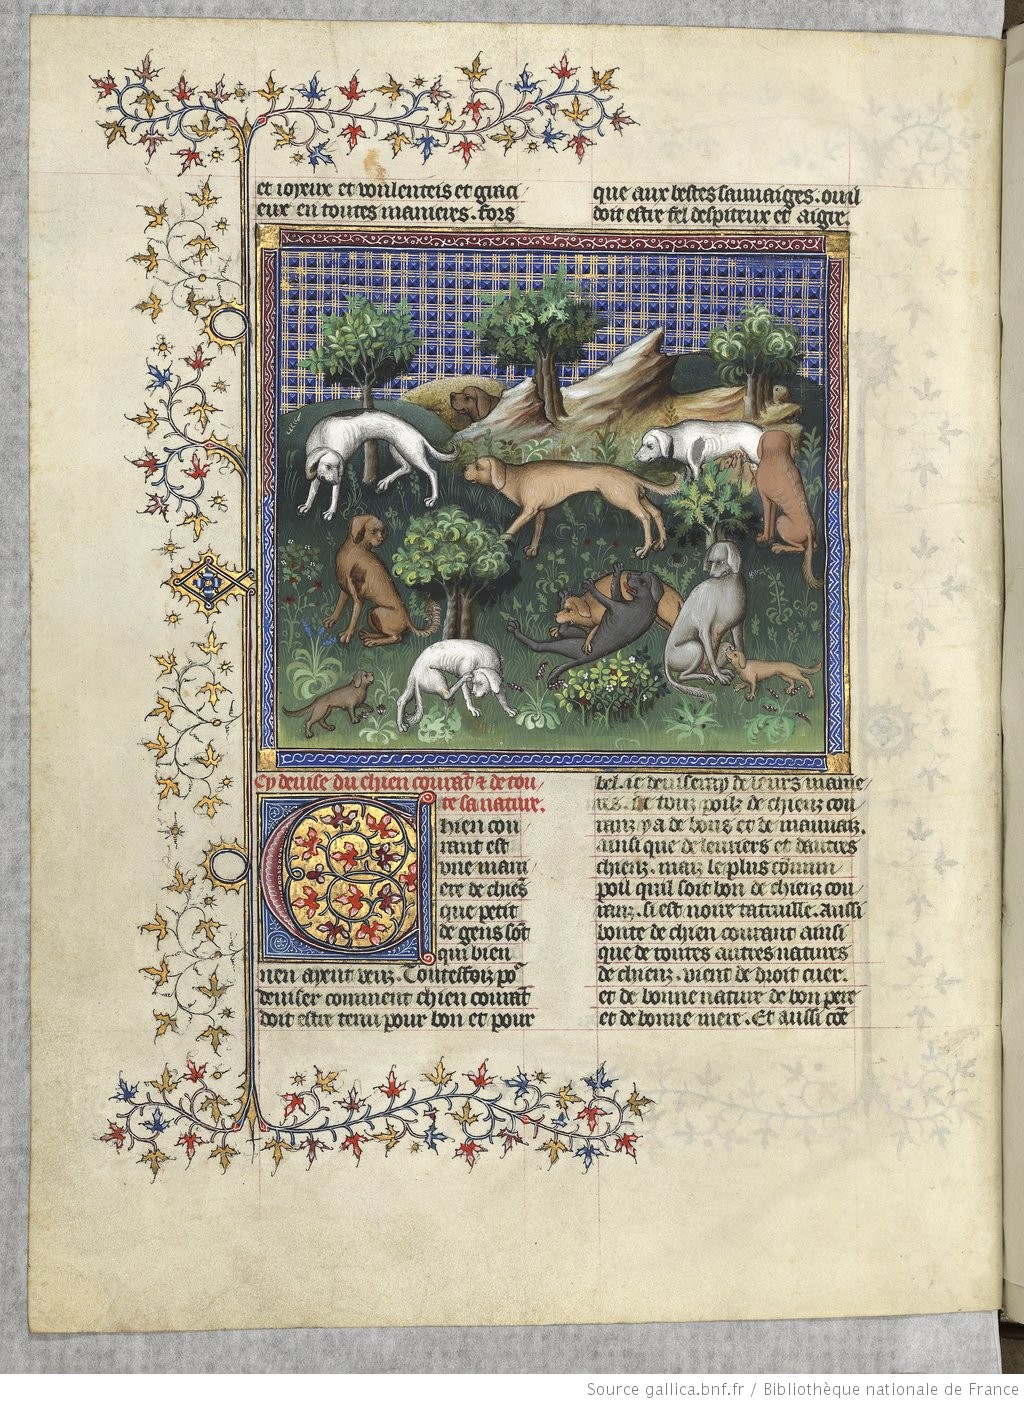 et ioyeux et voulenteis et graci
eux en toutes manieres. fors
que aux bestes sauuaiges. ou il
doit estre fel despiteux et aigre.
Cy deuise du chien courāt & de tou
te sa nature.
Chien cou
rant est
vne mani
ere de chiēs
que petit
de gens sōt
qui bien
nen ayent veuz. Toutesfoiz po
deuiser comment chien courāt
doit estre tenu pour bon et pour
bel. ie deuiseray de leurs manie
res. De touz poilz de chienz cou
ranz y a de bons et de mauuaiz.
ainsi que de leuriers et dautres
chienz. maiz le plus cōmun
poil quil soit bon de chienz cou
ranz. si est noire tatuille. Aussi
bonte de chien courant ainsi
que de toutes autres natures
de chienz. vient de droit cuer.
et de bonne nature de bon pere
et de bonne mere. Et aussi cōe
Source gallica.bnf.fr / Bibliothèque nationale de France